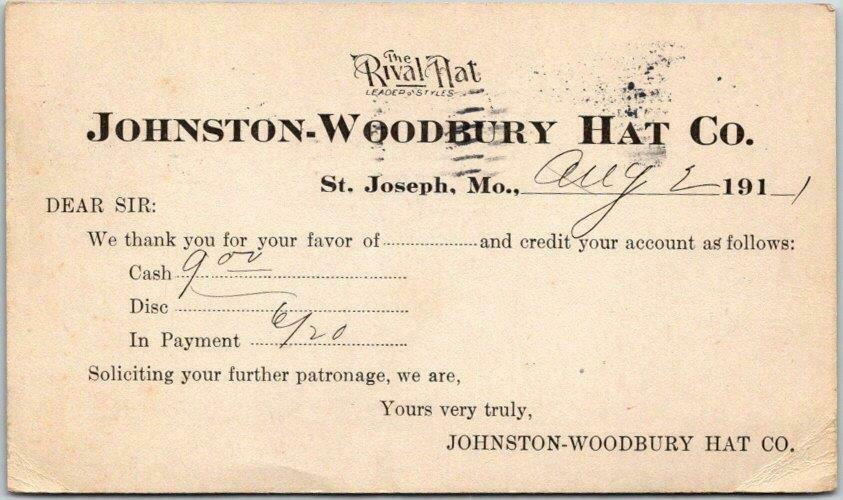 The
Rival Hat
LEADER OF STYLES
JOHNSTON-WOODBURY HAT CO.
St. Joseph, Mo., Aug 2 1911
DEAR SIR:
We thank you for your favor of and credit your account as follows:
Cash 9 00
Disc
In Payment 6/20
Soliciting your further patronage, we are,
Yours very truly,
JOHNSTON-WOODBURY HAT CO.